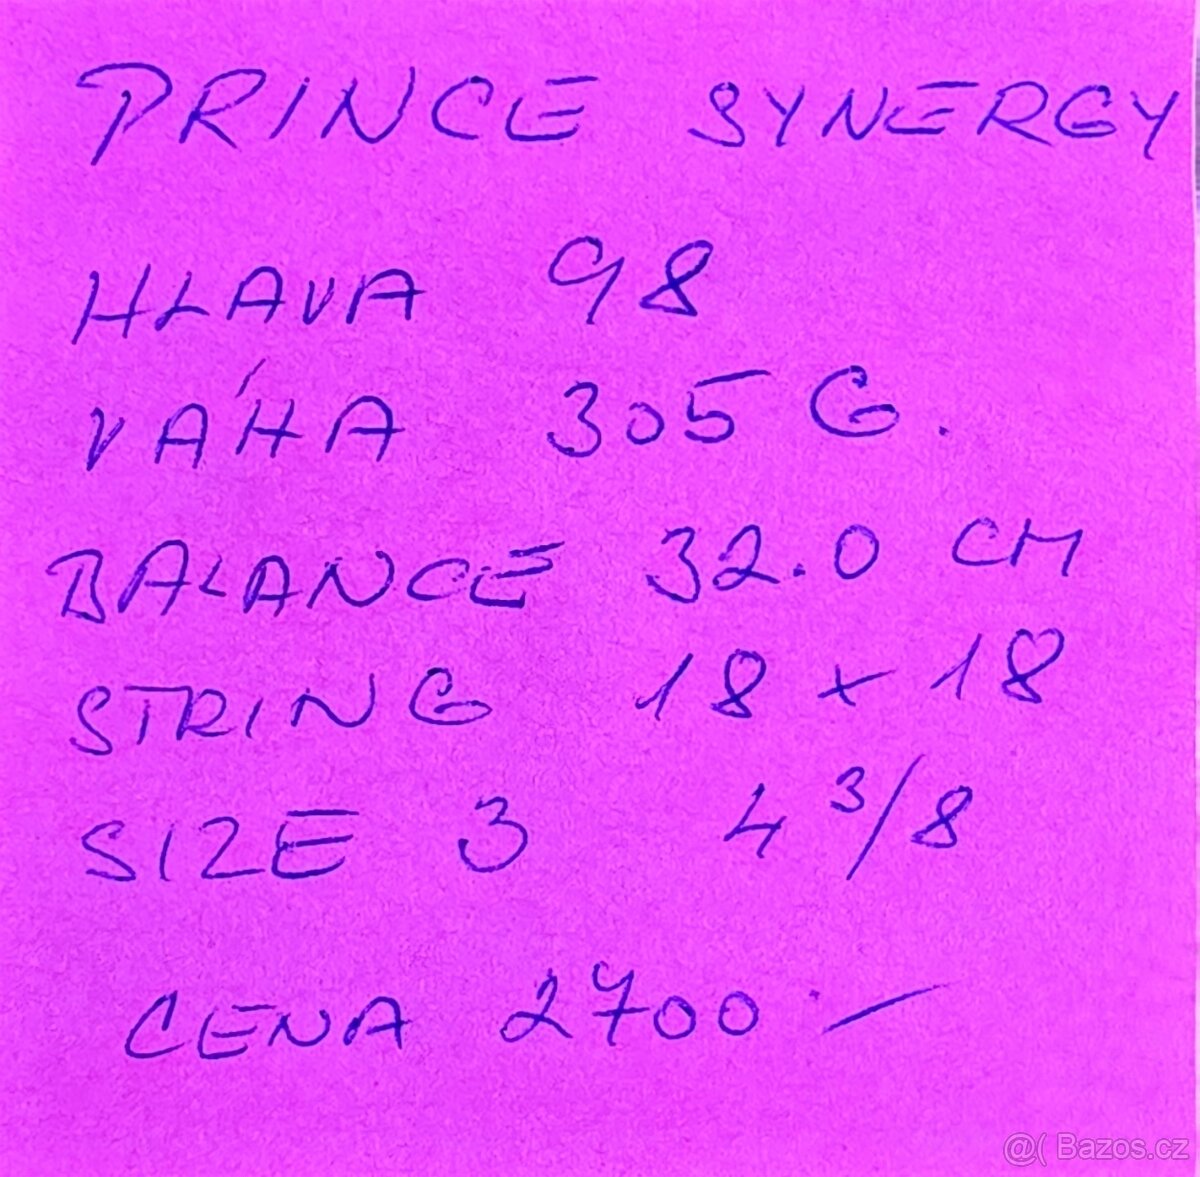 PRINCE SYNERGY
HLAVA 98
VÁHA 305 G.
BALANCE 32.0 CM
STRING 18 x 18
SIZE 3 4 3/8
CENA 2700.—
@( Bazos.cz